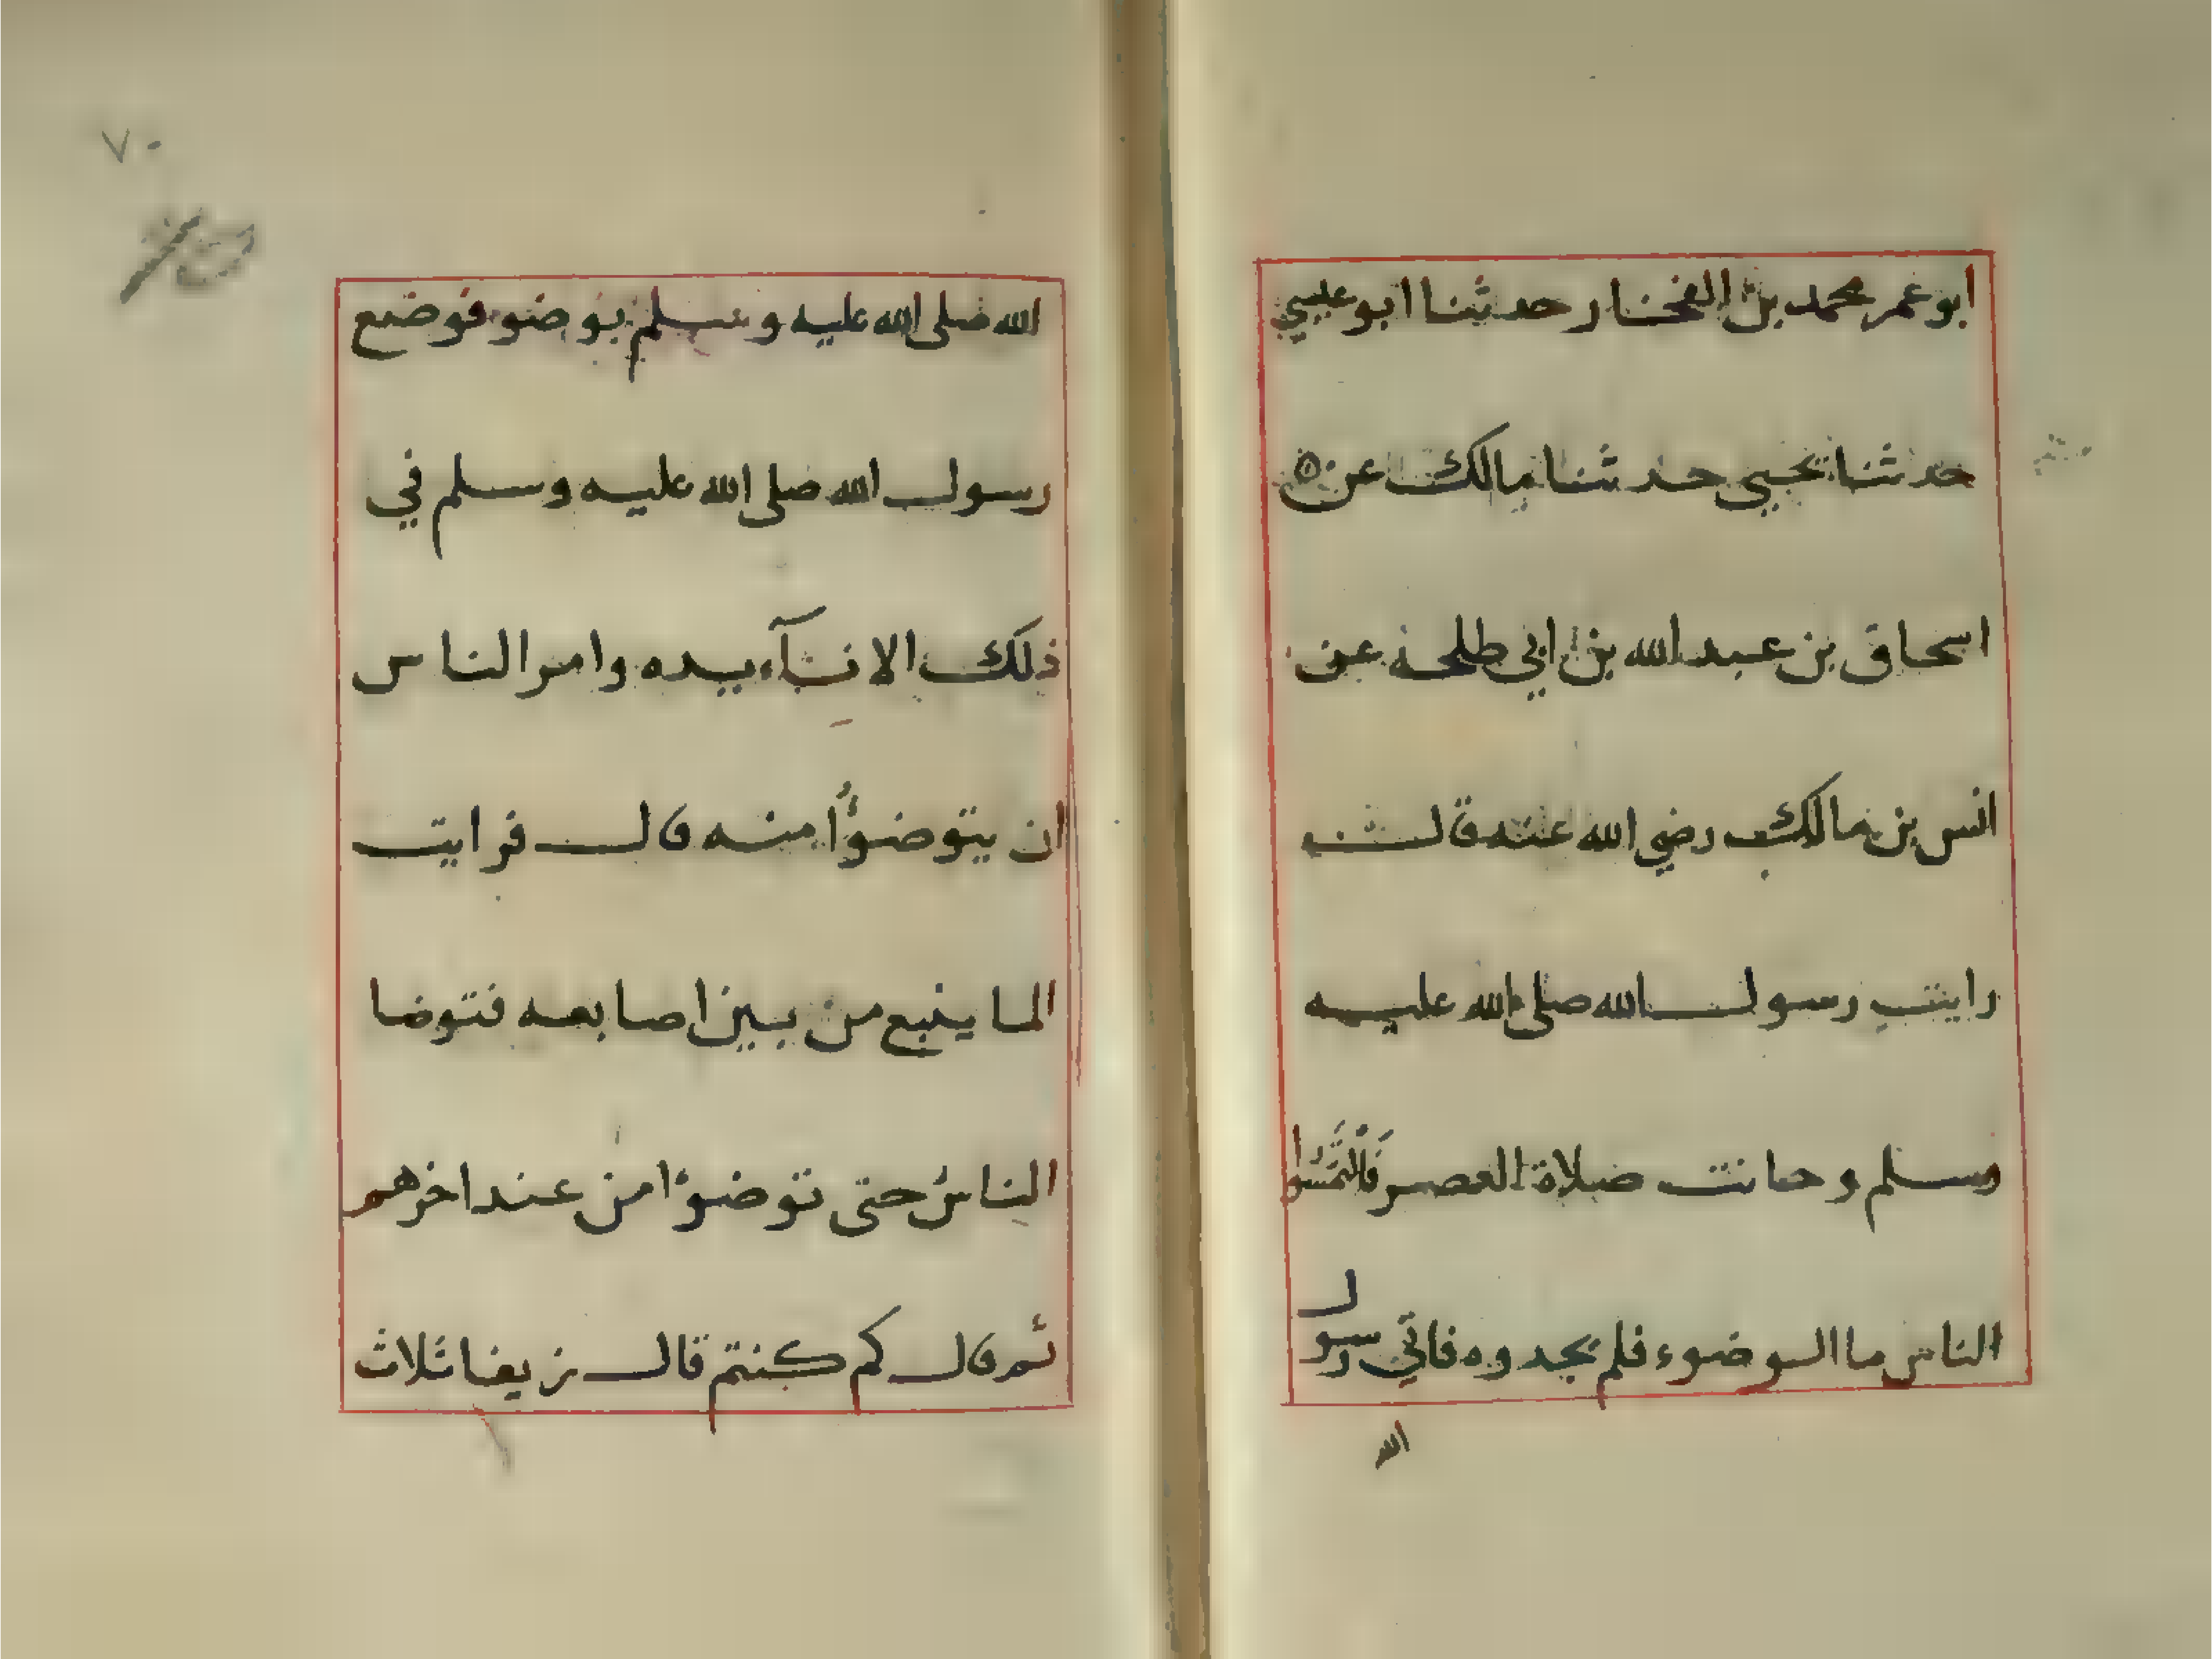 ابو عمر محمد بن الفخار حدثنا ابو عيسي
حدثنا يحيي حدثنا مالك عن
اسحاق بن عبد الله بن ابي طلحة عن
انس بن مالك رضي الله عنه قال
رايت رسول الله صلى الله عليه
وسلم وحانت صلاة العصر فَالْتَمَسُوا
الناس ما الوضوء فلم يجدوه فاتي رسول
الله
٧٠
الله صلى الله عليه وسلم بوضو فوضع
رسول الله صلى الله عليه وسلم في
ذلك الانآء بيده وامر الناس
ان يتوضوٴا منه قال فرايت
الما ينبع من بين اصابعه فتوضا
الناسُ حتى توضوٴا من عند اخرهم
ثم قال كم كنتم قال نزيفا ثلاث